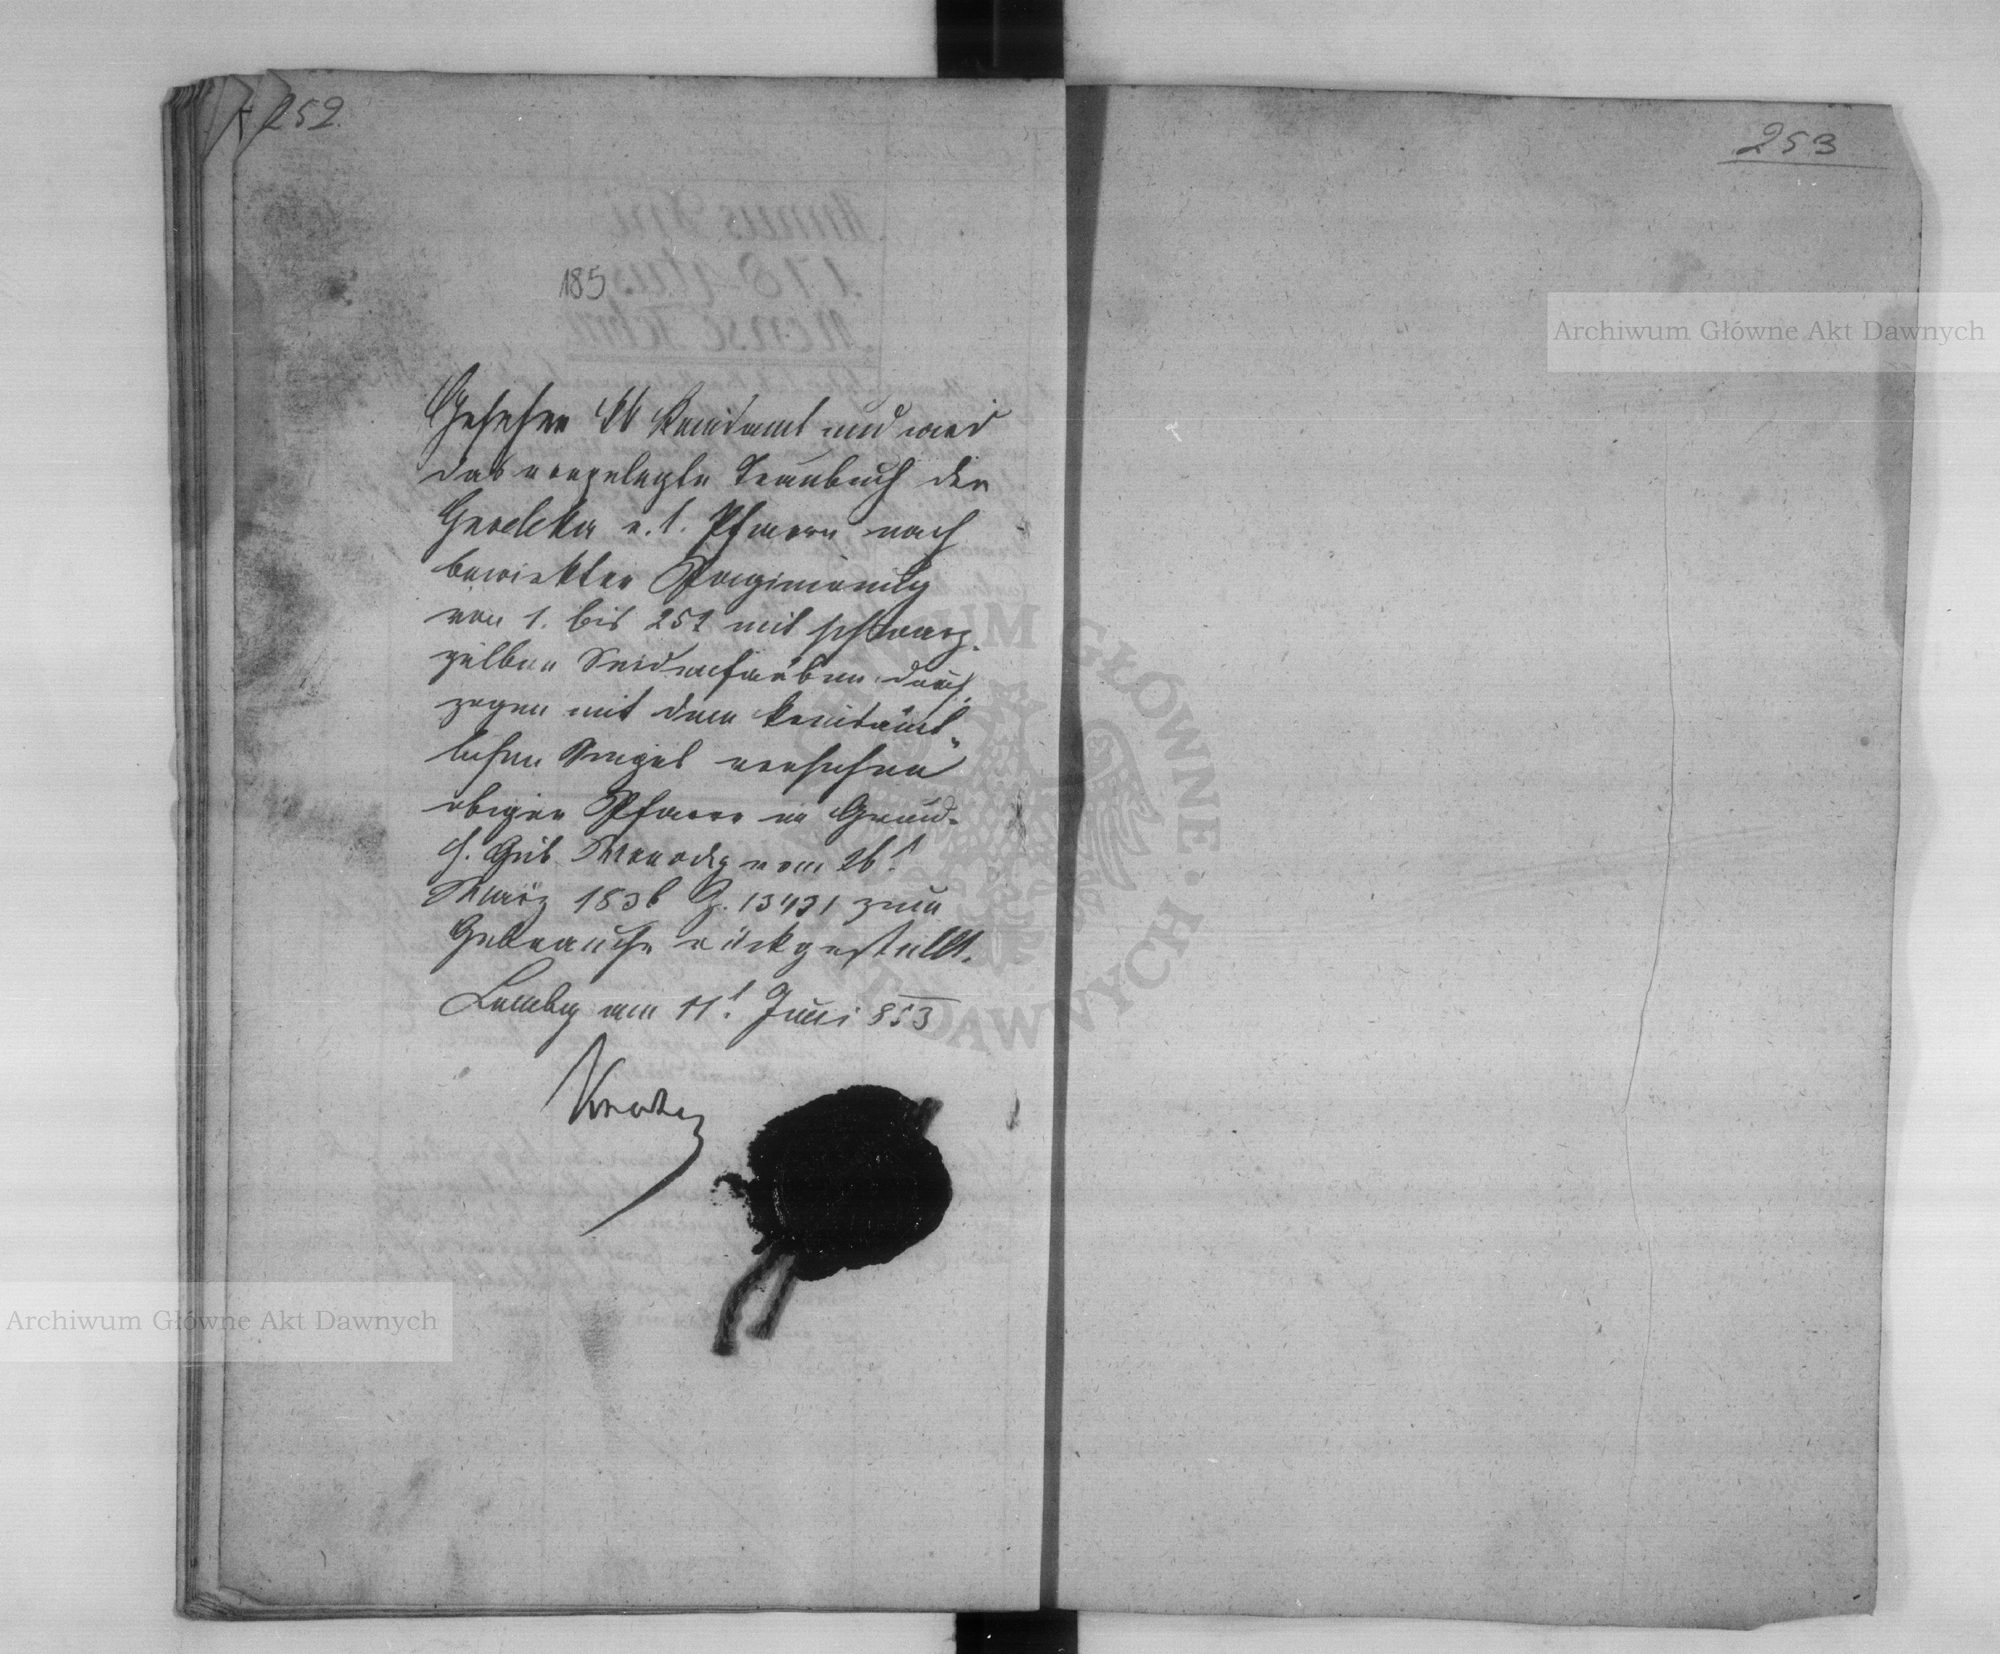 252.
253
185
Gesehen kk Kreisamt und wird
das vorgelegte Traubuch der
Grodeker r. l. Pfarre nach
bewirkter Paginirung
von 1. bis 252 mit schwarz
gelben Seidenfäden durch
zogen mit dem kreisämt-
lichen Siegel versehen
obiger Pfarre in Grund-
h. Gub. Verordg vom 26t
März 1836 Z. 13431 zum
Gebrauche rückgestellt.
Lemberg am 11t Juni 853
Archiwum Główne Akt Dawnych
Archiwum Główne Akt Dawnych
ARCHIWUM GŁÓWNE AKT DAWNYCH